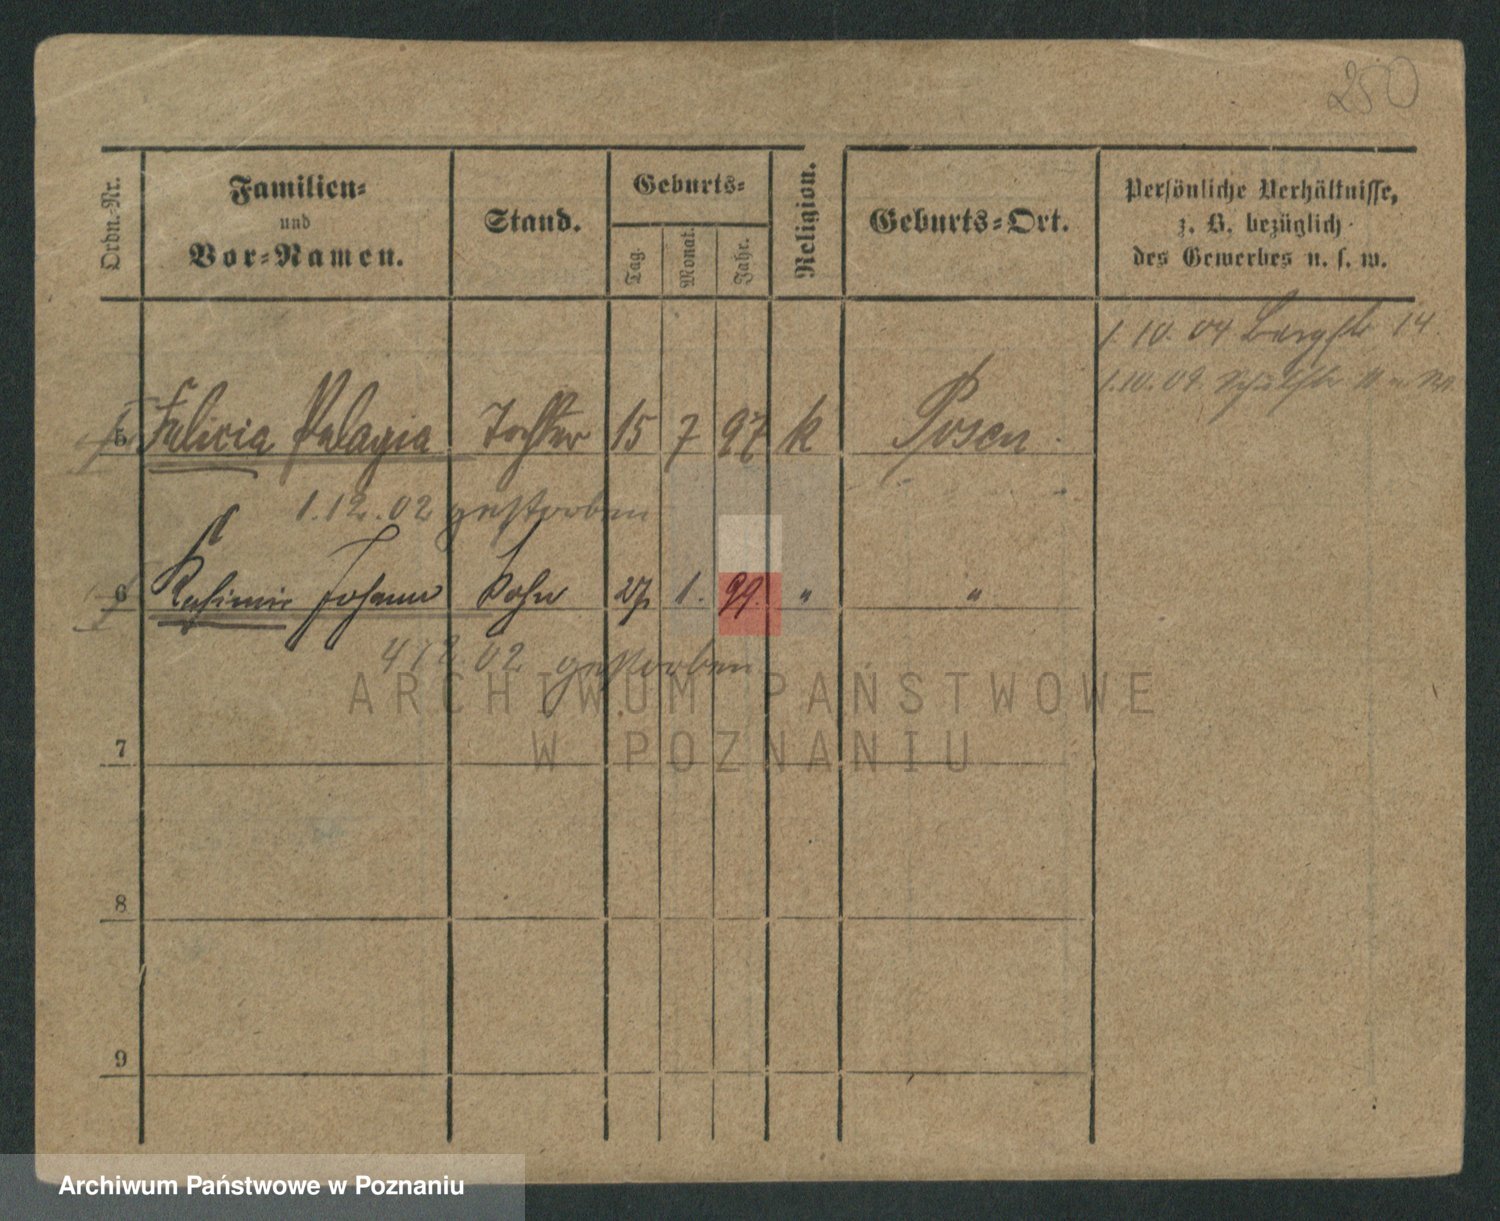 250
Ordn.-Nr.
Familien-
und
Vor-Namen.
Stand.
Geburts-
Tag.
Monat.
Jahr.
Religion.
Geburts-Ort.
Persönliche Verhältnisse,
z. B. bezüglich
des Gewerbes u. s. w.
1.10.04 Bergstr 14.
1.10.09.
5 Felicia Pelagia Tochter 15 7 97 k Posen.
1.12.02 gestorben
6 Kasimir Johann Sohn 27. 1. 99. " "
4 12 02 gestorben
ARCHIWUM PAŃSTWOWE
W POZNANIU
7
8
9
Archiwum Państwowe w Poznaniu